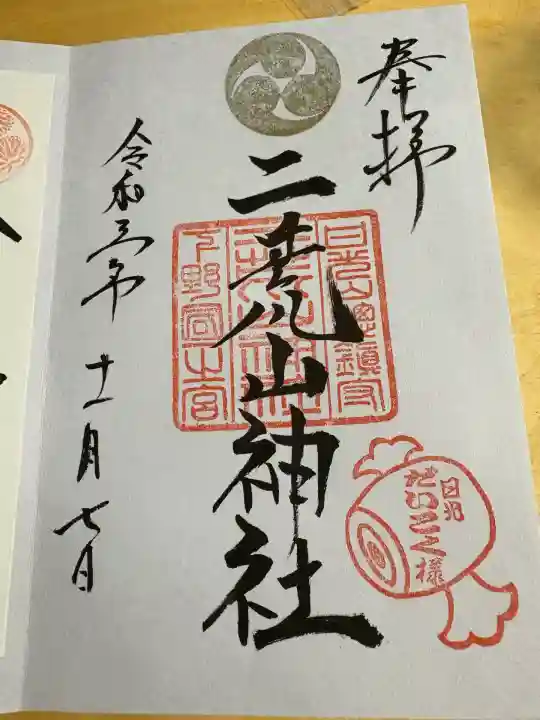 奉拝
二荒山神社
日光山總鎮守
二荒山神社
下野國一之宮
日光
だいこく様
令和三年 十一月七日